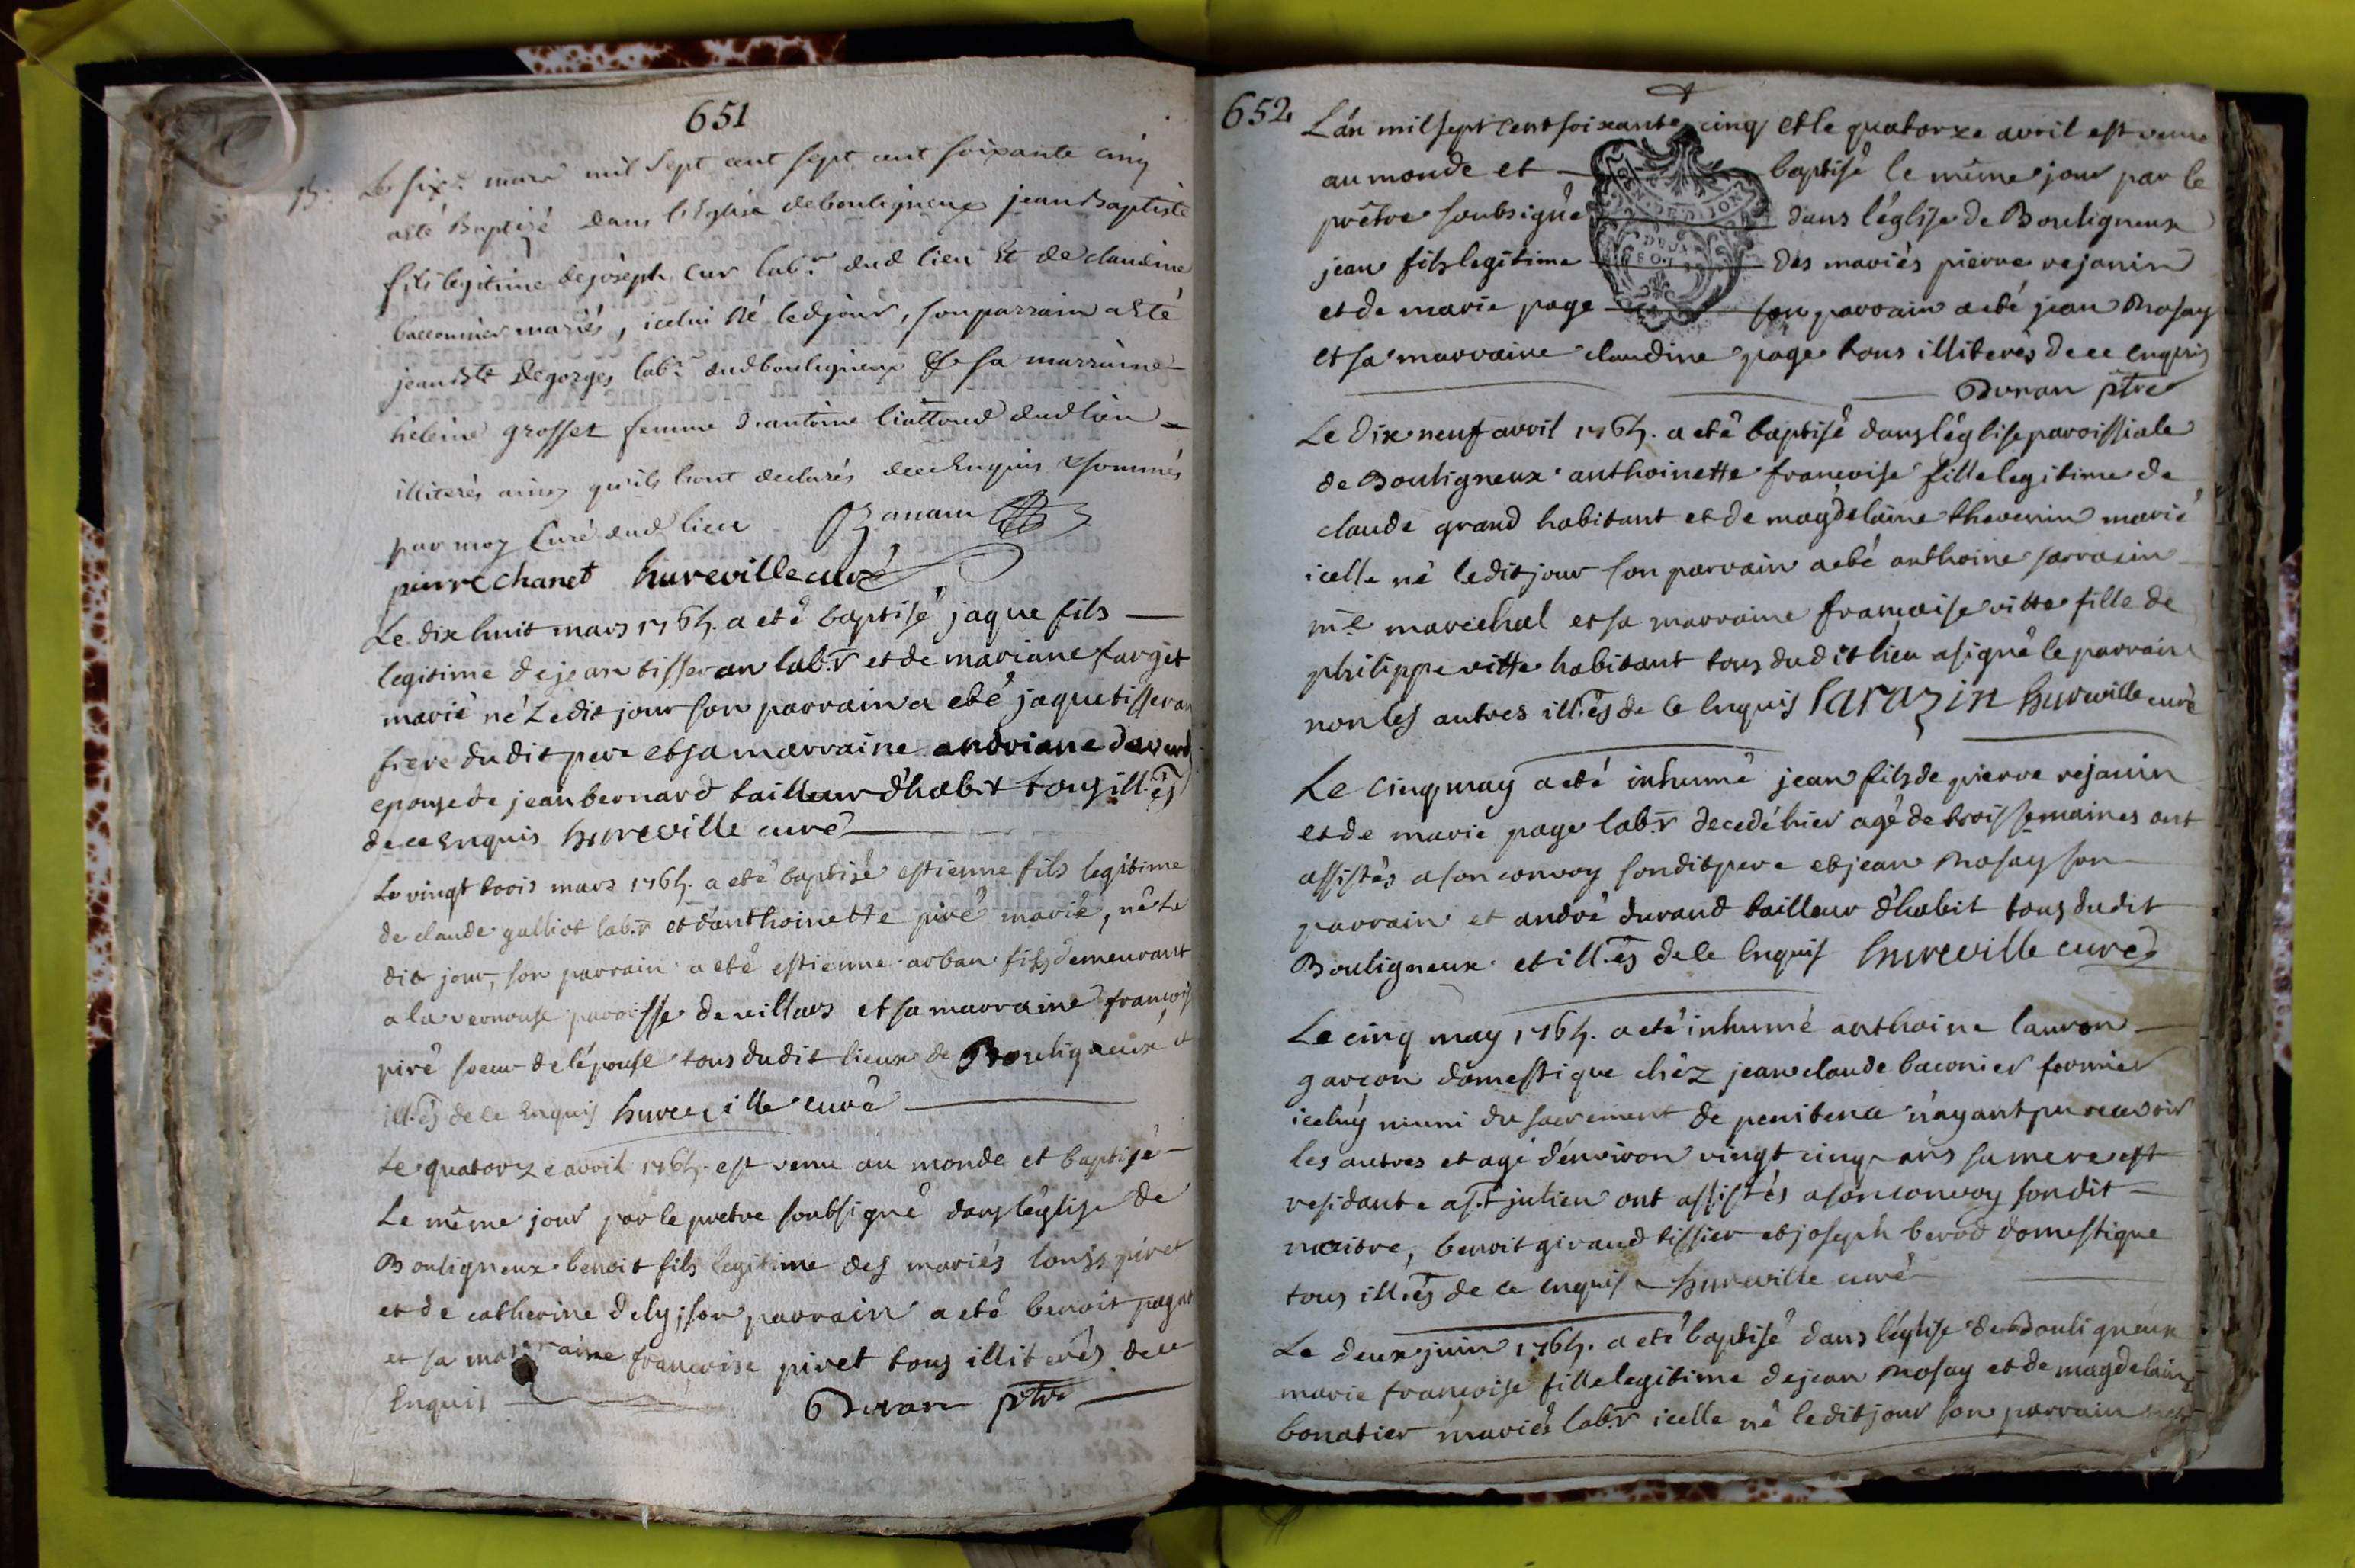 651
B. Le six.e mars mil sept cent sept cent soixante cinq
a Eté Baptisé dans l'Eglise debouligneux jean Baptiste
fils legitime de joseph Cur lab.r dud lieu Et de claudine
bacconnier mariés, icelui Né ledjour, son parrain a Eté
jean Degorges lab.r dud bouligneux & sa marraine
heleine grosset femme d'antoine liattoud dud lieu
illiterés ainsy qu'ils hont declarés dece Enquis & sommés
par moy Curé dud lieu Banam
pierre chanet hureville curé
Le dix huit mars 1765. a eté baptisé jaque fils
legitime de jean tisseran lab.r et de mariane farget
marié né Ledit jour son parrain a eté jaque tisseran
frere dudit pere et sa marraine andriane
epouse de jean bernard tailleur d'habit tous ill.és
de ce Enquis hureville curé
Le vingt trois mars 1765. a eté baptisé estienne fils legitime
de claude galliot lab.r et d'anthoinette piré marié, né Le
dit jour, son parrain a eté estienne arban fils demeurant
a la vernouse paroisse de villars et sa marraine françoise
piré soeur de lépouse tous dudit lieux de Bouligneux et
ill.és de ce Enquis hureville curé
Le quatorze avril 1765. est venu au monde et baptisé
Le même jour par le pretre soubsigné dans l'église de
Bouligneux benoit fils legitime des mariés louis piret
et de catherine dely; son parrain a eté benoit pagat
et sa marraine françoise piret tous illiterés de ce
Enquis Duran ptre
652
L'an mil sept cent soixante cinq et le quatorze avril est venu
au monde et baptisé le même jour par le
prêtre soubsigné dans l'église de Bouligneux
jean fils legitime des mariés pierre rejanin
et de marie page son parrain a eté jean Mosay
et sa marraine claudine page tous illiterés de ce enquis
Duran ptre
Le Dix neuf avril 1765. a eté baptisé dans l'église paroissiale
de Bouligneux anthoinette françoise fille legitime de
claude grand habitant et de magdelaine thevenin marié
icelle né ledit jour son parrain a eté anthoine sarrasin
m.e marechal et sa marraine françoise vitte fille de
philippe vitte habitant tous dudit lieu a signé le parrain
non les autres ill.és de ce Enquis sarazin hureville curé
Le cinq may a eté inhumé jean fils de pierre rejanin
et de marie page lab.r decedé hier agé de trois semaines ont
assistés a son convoy son dit pere et jean Mosay son
parrain et andré durand tailleur d'habit tous dudit
Bouligneux et ill.és de ce Enquis hureville curé
Le cinq may 1765. a eté inhumé anthoine lauron
garçon domestique chéz jean claude baconier fermier
iceluy muni du sacrement de penitence n'ayant pu recevoir
les autres et agé d'environ vingt cinq ans sa mere est
residante a s.t julien ont assistés a son convoy son dit
maitre, benoit giraud tissier et joseph berod domestique
tous ill.és de ce enquis hureville curé
Le deux juin 1765. a eté baptisé dans l'église de Bouligneux
marie françoise fille legitime de jean Mosay et de magdelaine
bonatier mariés lab.r icelle né ledit jour son parrain